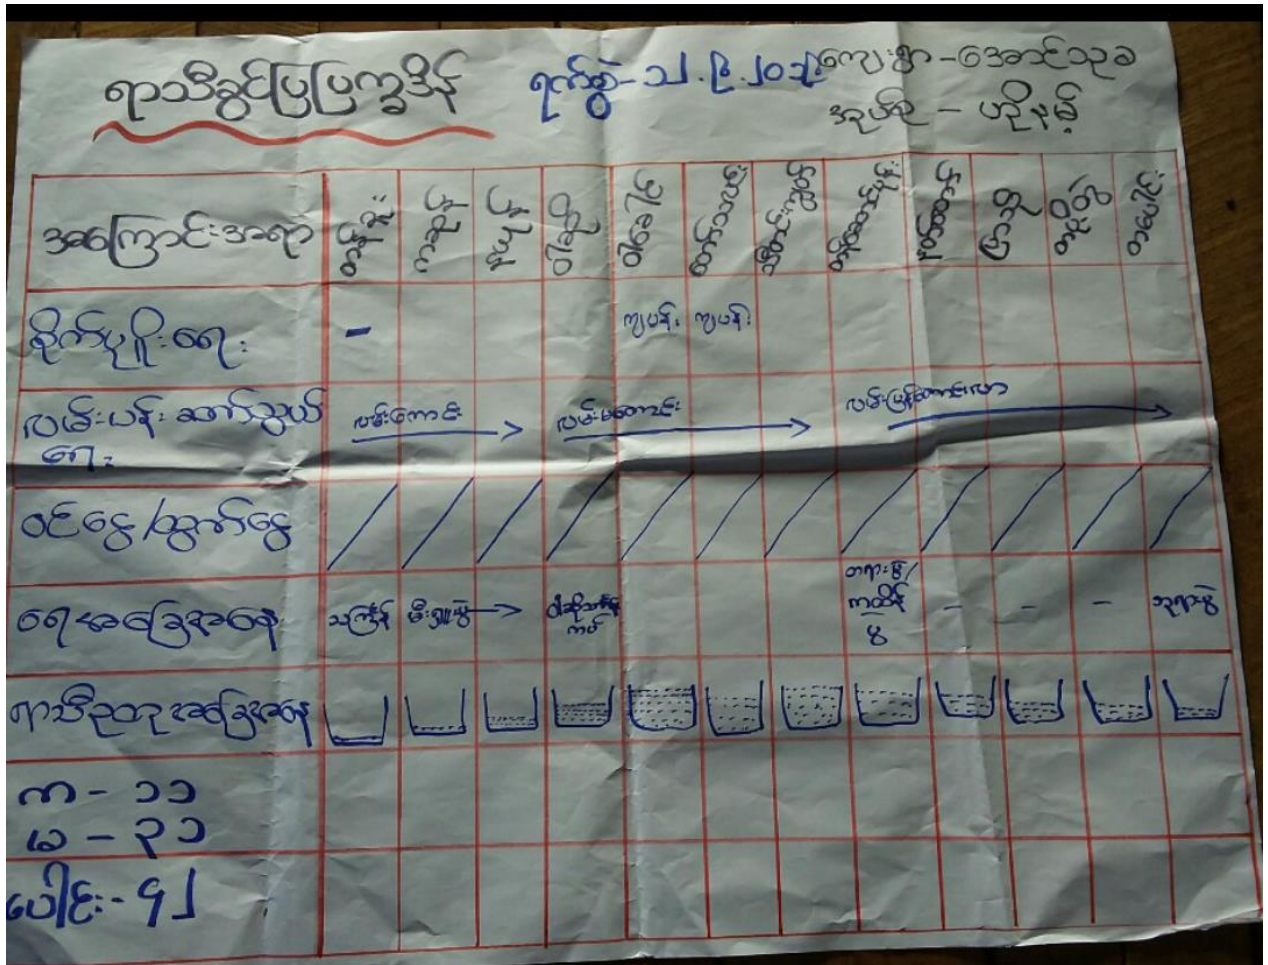 ရာသီခွင်ပြပြက္ခဒိန်
ရက်စွဲ-
ကျေးရွာ-အောင်သုခ
အုပ်စု -
အကြောင်းအရာ တန်ခူး ကဆုန် နယုန် ဝါဆို ဝါခေါင် တော်သလင်း သီတင်းကျွတ် တန်ဆောင်မုန်း နတ်တော် ပြာသို တပို့တွဲ တပေါင်း
စိုက်ပျိုးရေး - ကျပန်း ကျပန်း
လမ်းပန်းဆက်သွယ်
ရေး
လမ်းကောင်း လမ်းမကောင်း လမ်းပြန်ကောင်းလာ
ဝင်ငွေ/ထွက်ငွေ
ရေအခြေအနေ သင်္ကြန် ကထိန် - - - ဘုရားပွဲ
ပွဲ
ရာသီဥတုအခြေအနေ
ကာ - ၁၁
မ - ၃၁
ပေါင်း - ၄၂